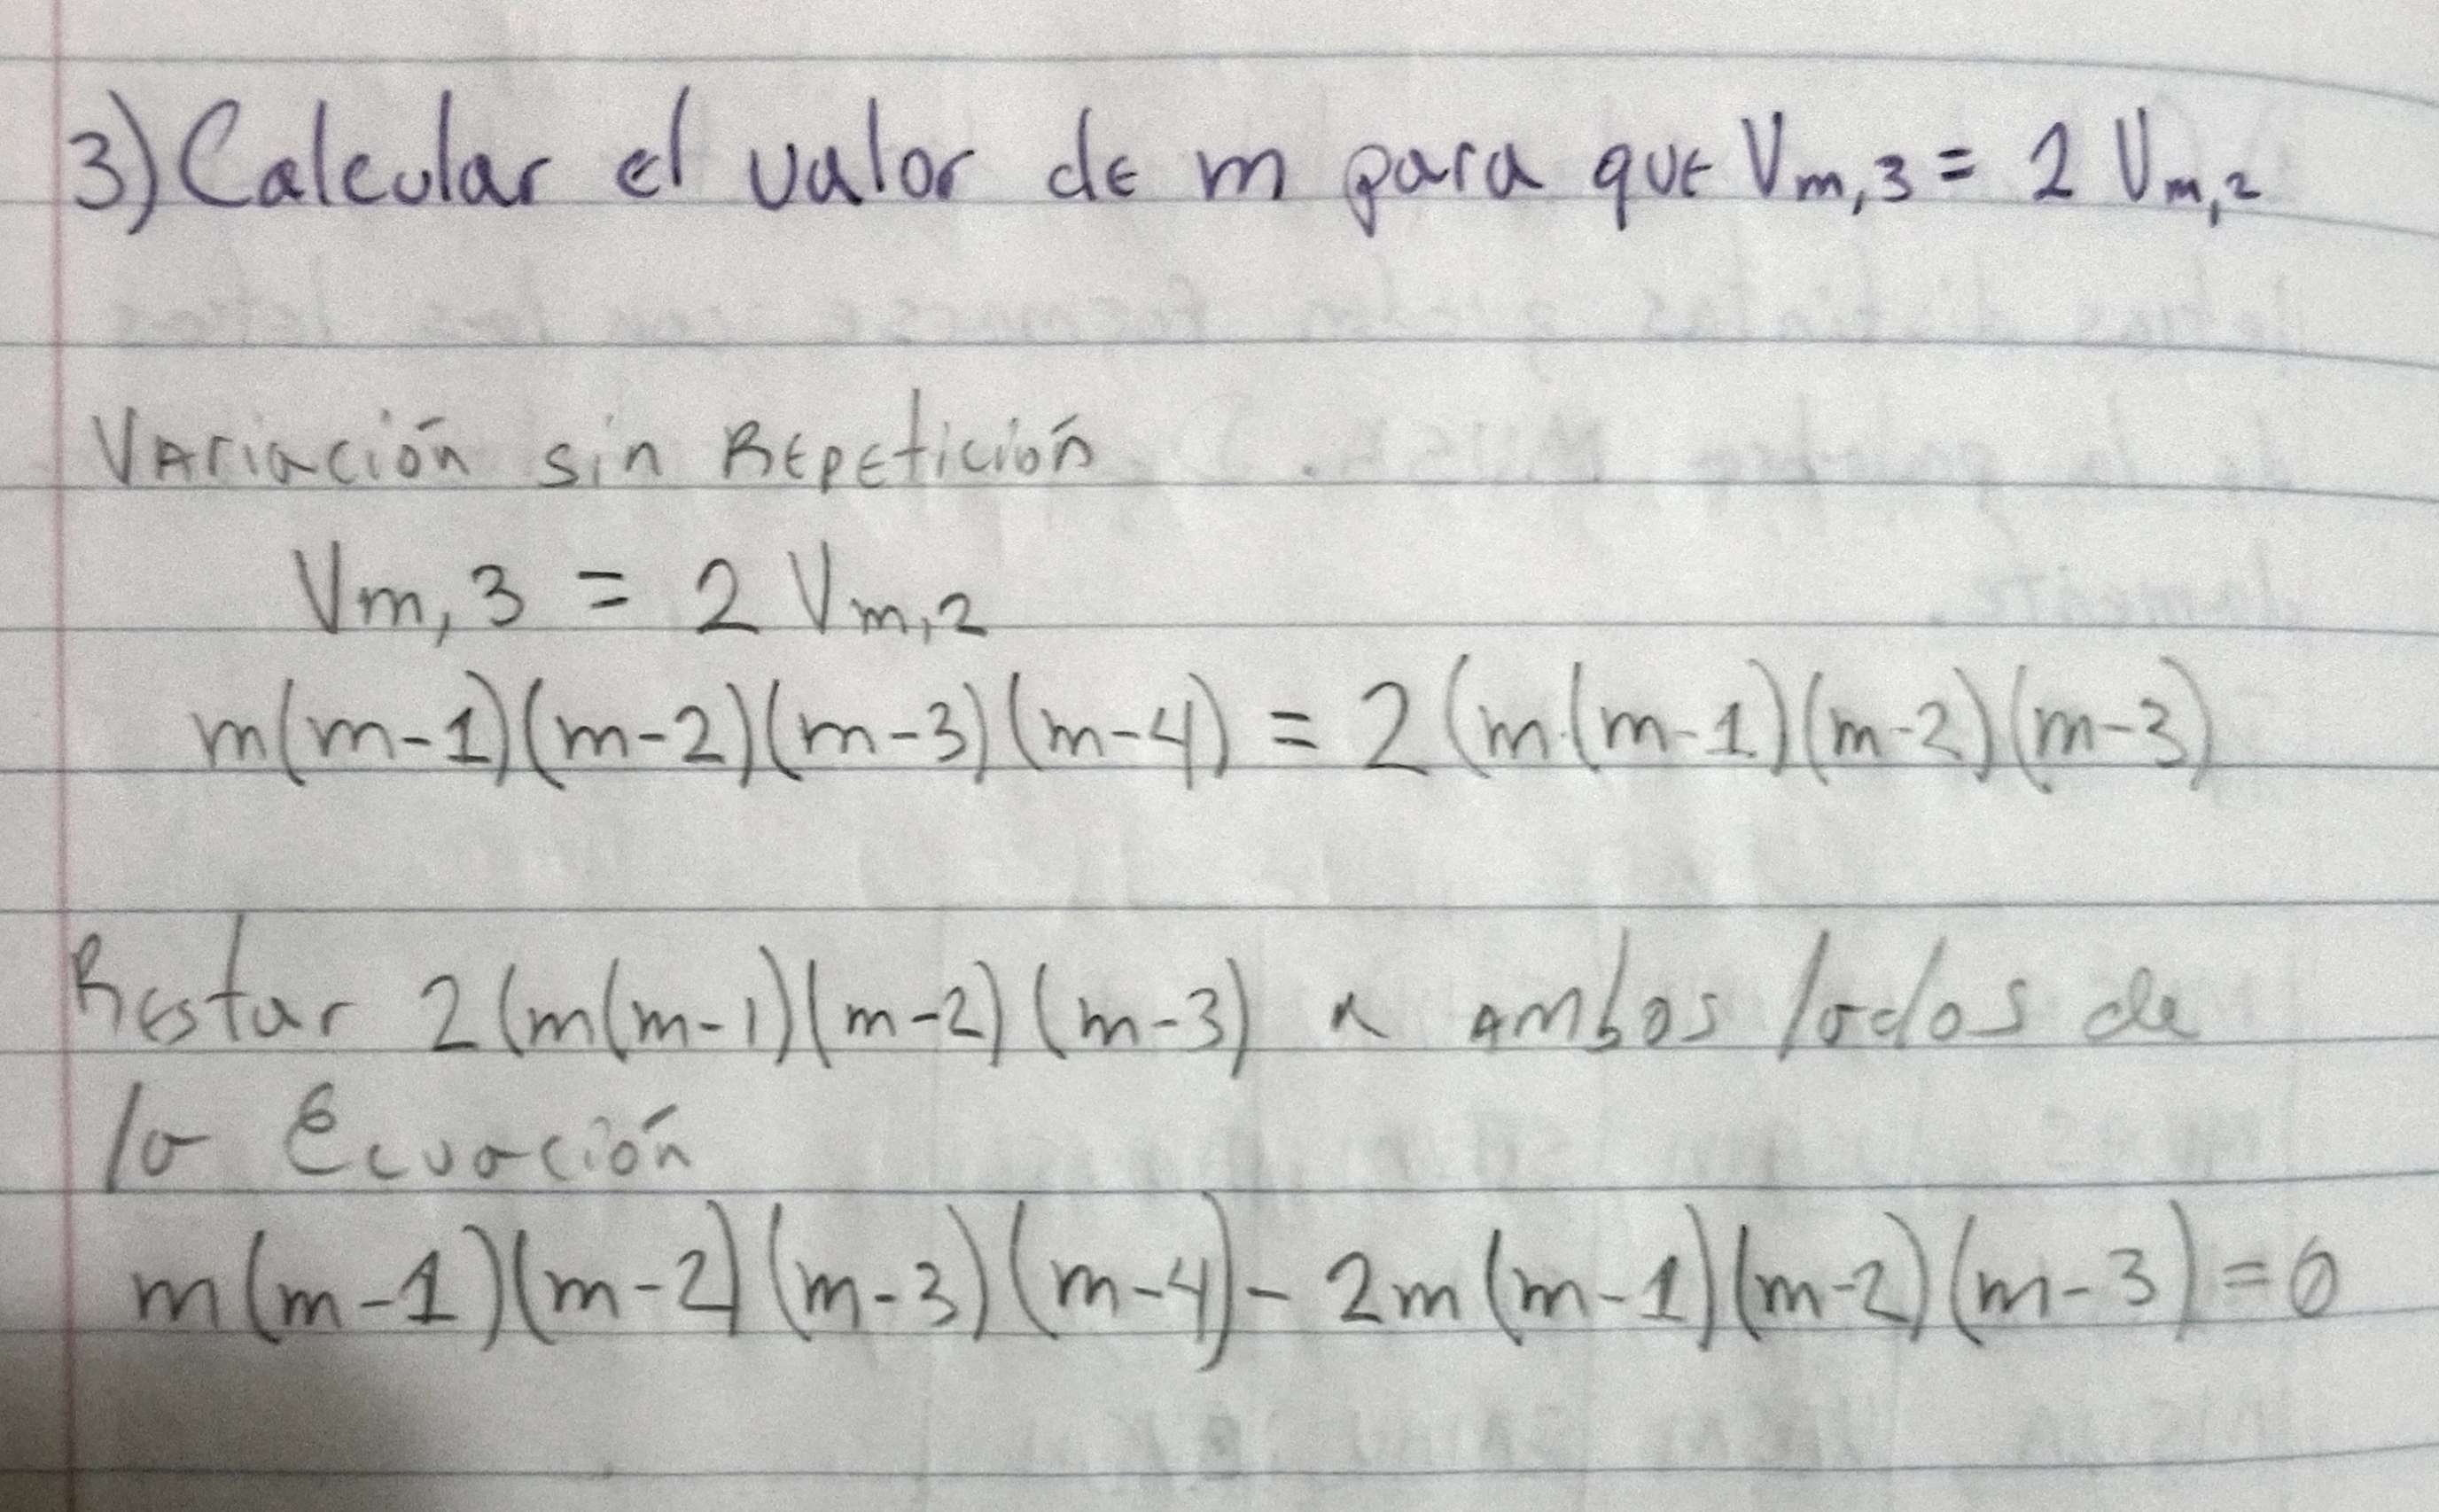 3) Calcular el valor de m para que Vm,3 = 2 Vm,2
Variación sin Repetición
Vm,3 = 2 Vm,2
m(m-1)(m-2)(m-3)(m-4) = 2(m(m-1)(m-2)(m-3)
Restar 2(m(m-1)(m-2)(m-3) a ambos lados de
la Ecuación
m(m-1)(m-2)(m-3)(m-4) - 2m(m-1)(m-2)(m-3) = 0